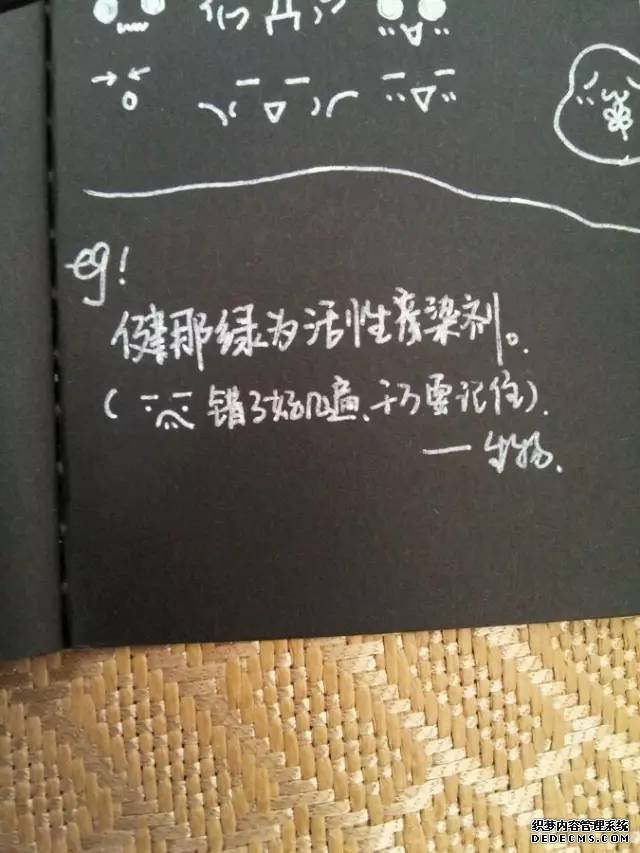 eg!
健那绿为活性染染剂。
(错了好几遍、千万要记住).
— 生物.
织梦内容管理系统
DEDECMS.COM